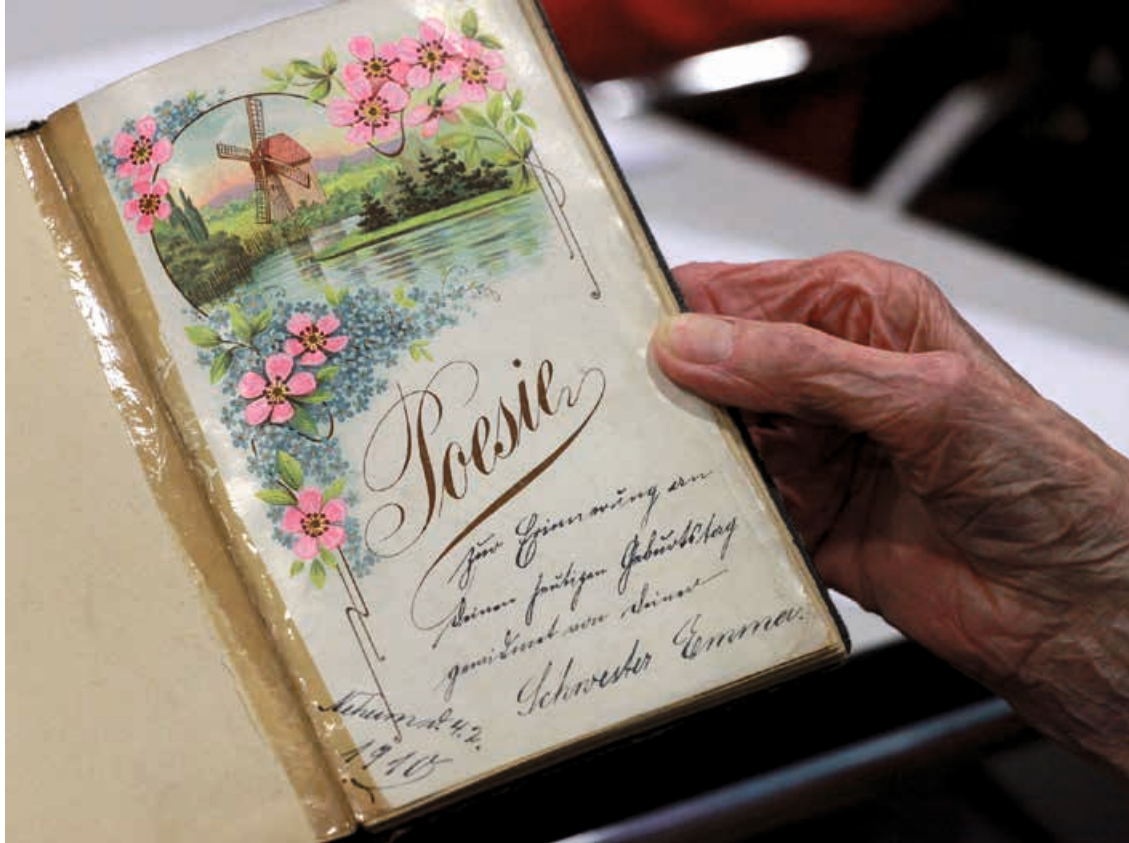 Poesie
Zur Erinnerung an
Deinen heutigen Geburtstag
gewidmet von Deiner
Schwester Emma.
Neheim d. 4. 2.
1910